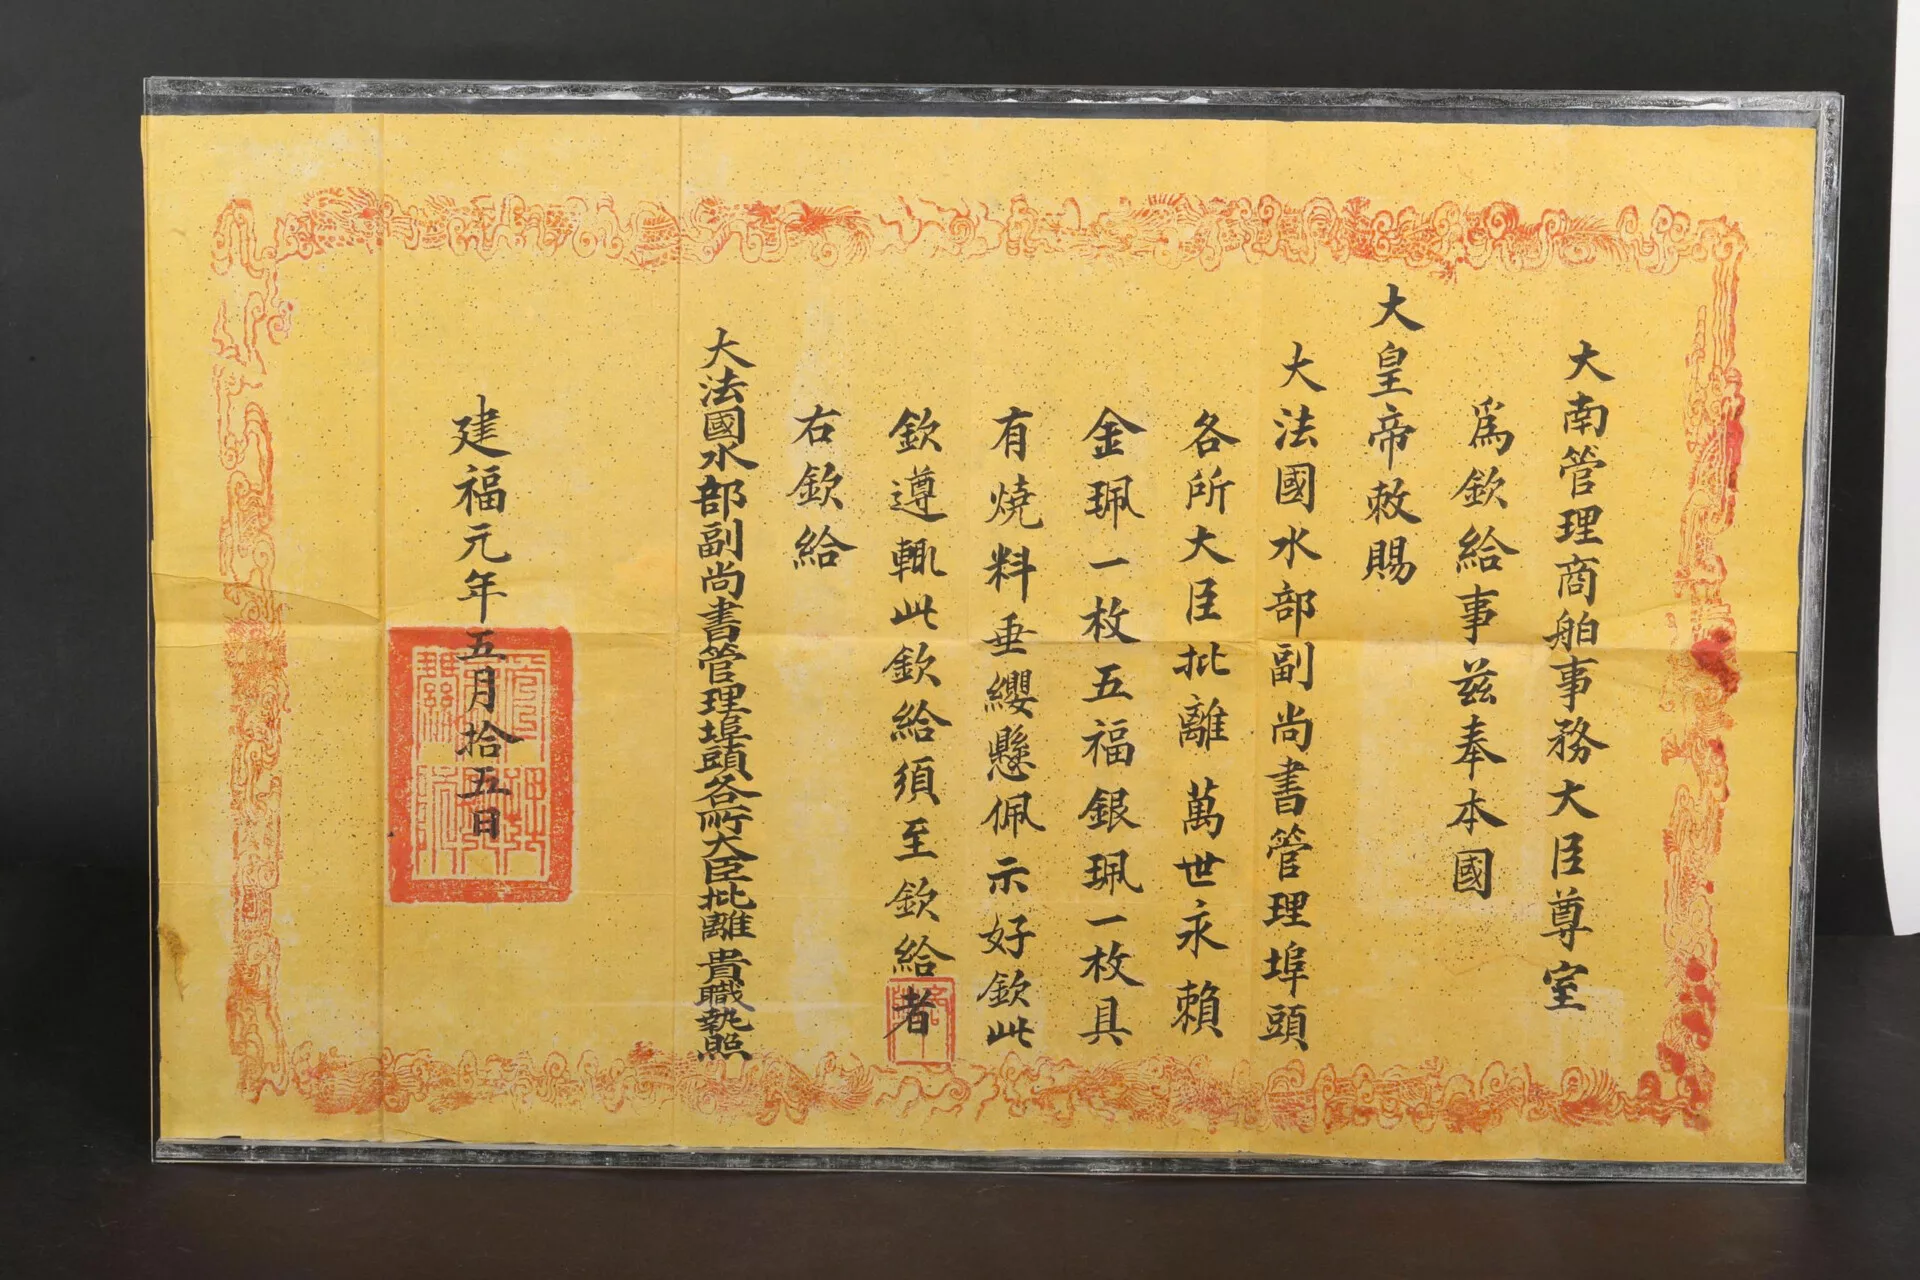 大南管理商舶事務大臣尊室
爲欽給事茲奉本國
大皇帝敕賜
大法國水部副尚書管理埠頭
各所大臣批離萬世永賴
金珮一枚五福銀珮一枚具
有燒料垂纓懸佩示好欽此
欽遵輒此欽給須至欽給者
右欽給
大法國水部副尚書管理埠頭各所大臣批離貴職執照
建福元年五月拾五日